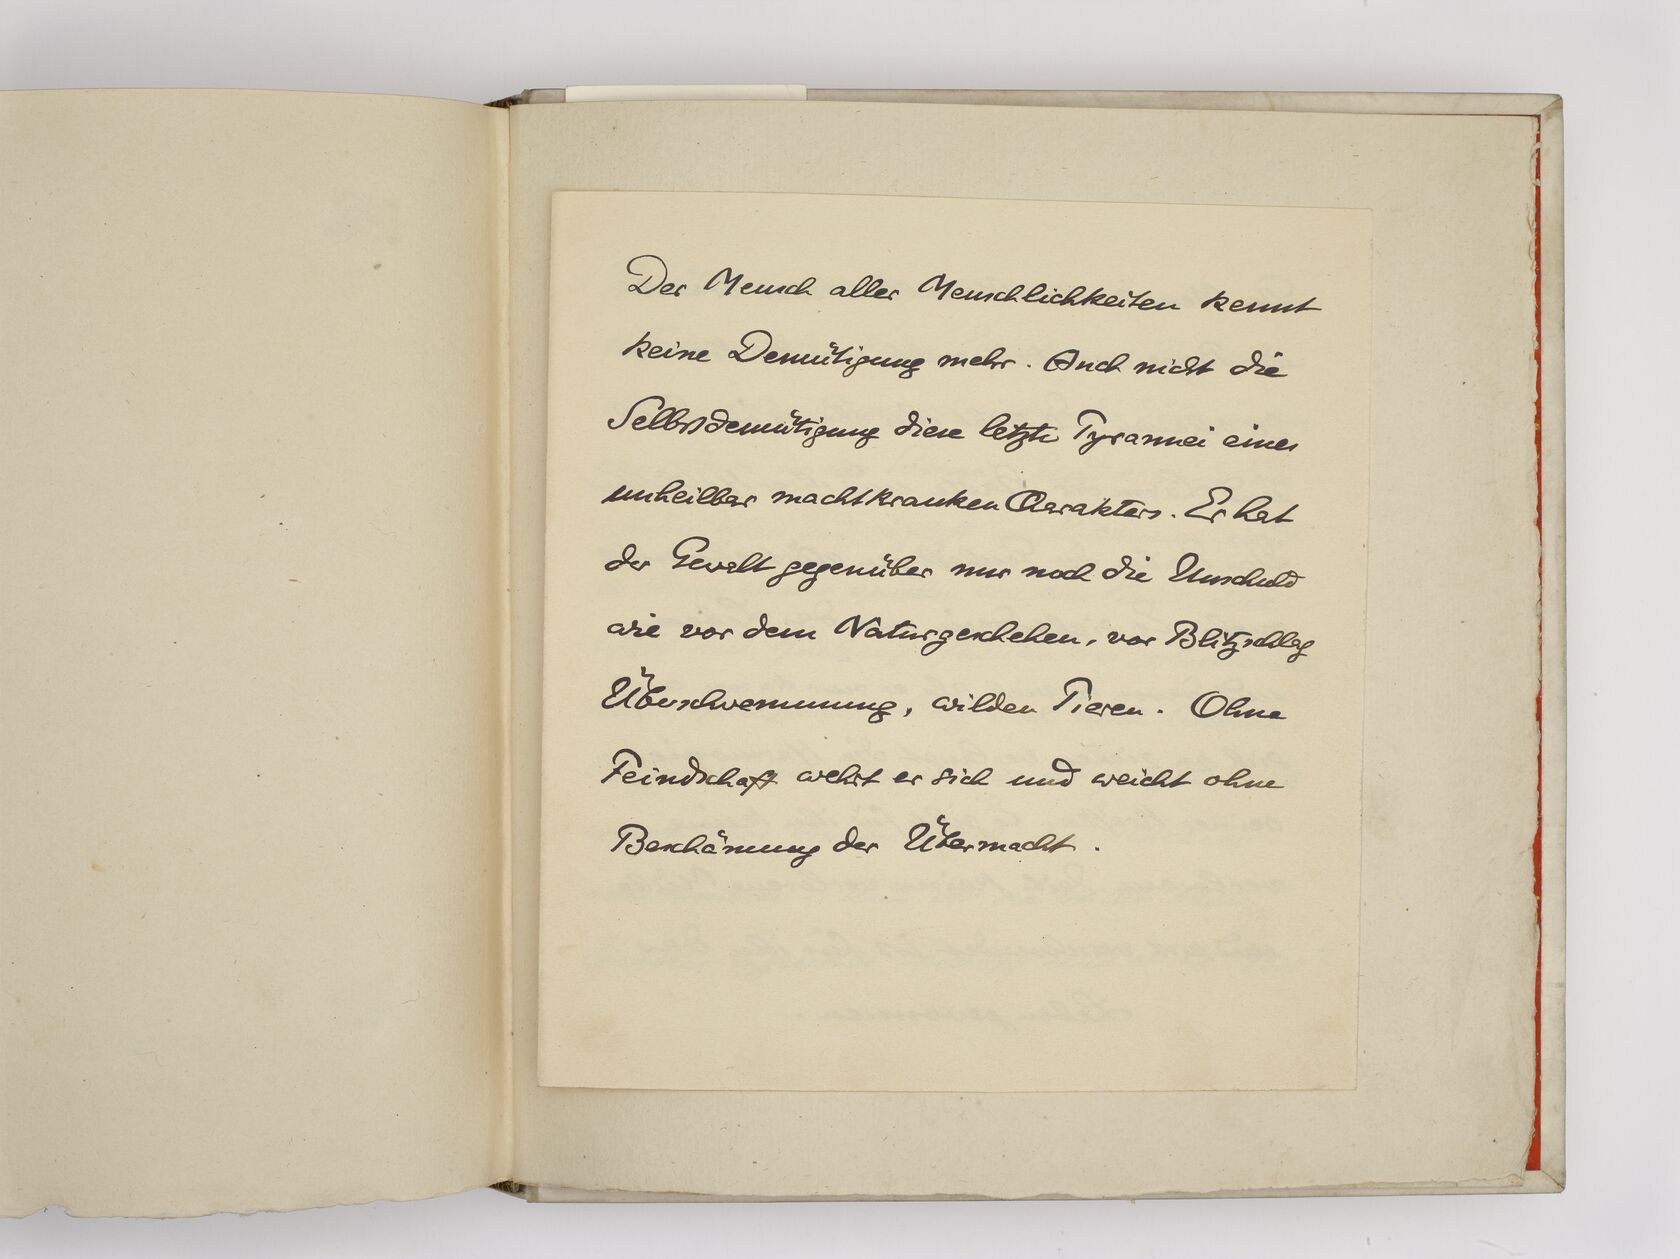 Der Mensch aller Menschlichkeiten kennt
keine Demütigung mehr. Auch nicht die
Selbstdemütigung diese letzte Tyrannei eines
unheilbar machtkranken Charakters. Er hat
der Gewalt gegenüber nur noch die Unschuld
wie vor dem Naturgeschehen, vor Blitzschlag
Überschwemmung, wilden Tieren. Ohne
Feindschaft wehrt er sich und weicht ohne
Beschämung der Übermacht.